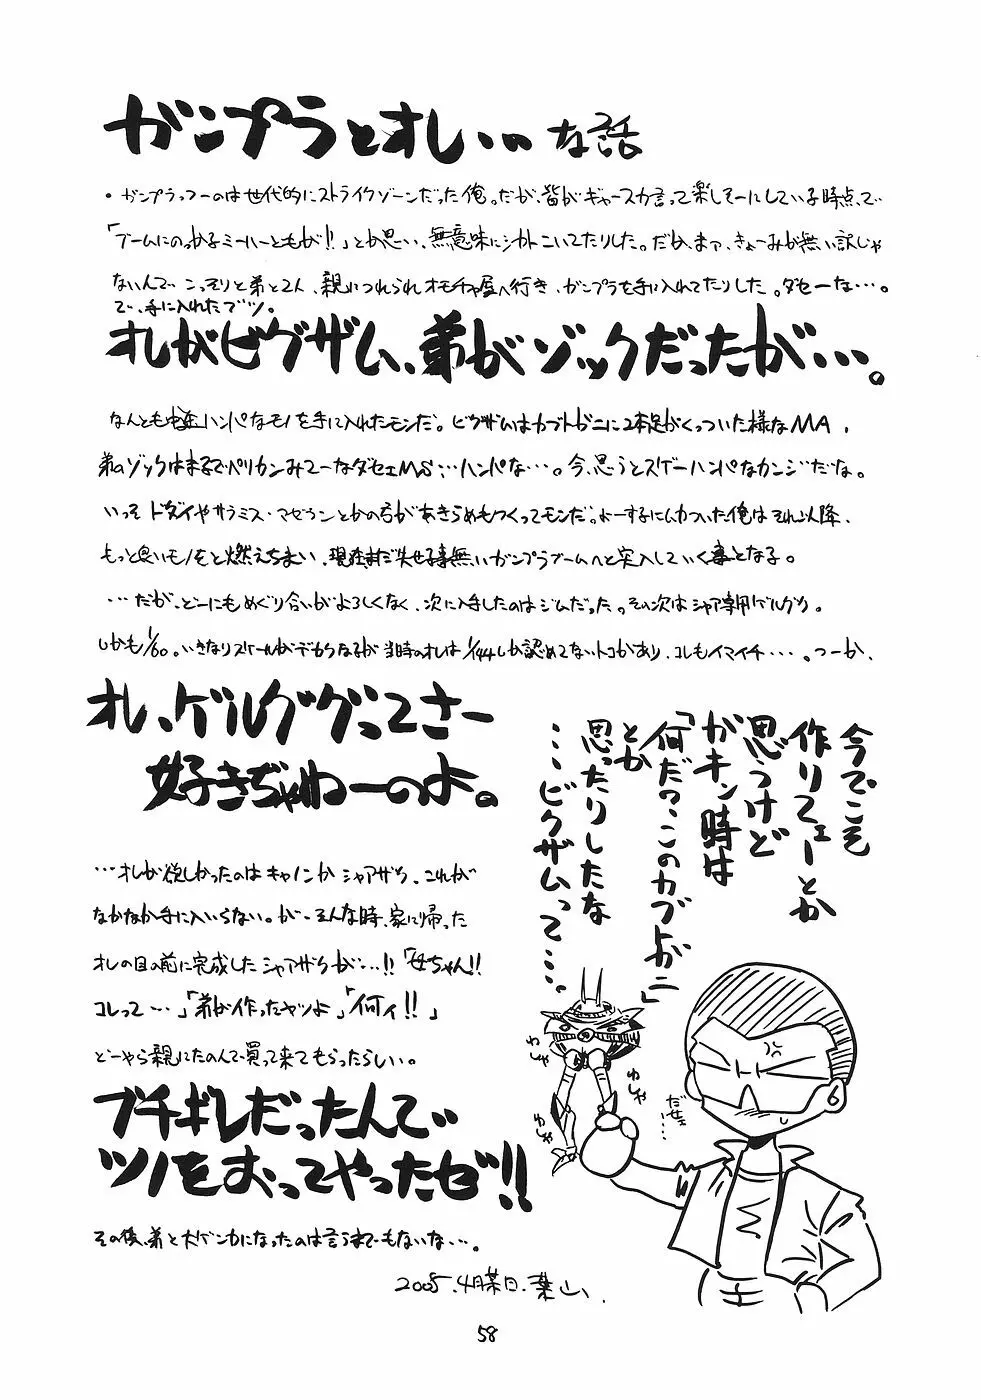 ガンプラとオレ・・・な話
・ガンプラっつーのは世代的にストライクゾーンだった俺。だが、皆がギャースカ言って楽しそーにしている時点で
「ブームにのっかるミーハーどもが!!」とか思い、無意味にシカトこいてたりした。だが、まァ、きょーみが無い訳じゃ
ないんで こっそりと弟と2人、親につれられオモチャ屋へ行き、ガンプラを手に入れてたりした。ダセーな…。
で、手に入れたブツ。
オレがビグザム、弟がゾックだったが…。
なんとも中途ハンパなモノを手に入れたモンだ。ビグザムはカブトガニに2本足がくっついた様なMA、
弟のゾックはまるでペリカンみてーなダセェMS…ハンパな…。今、思うとスゲーハンパなカンジだな。
いっそ ドダイやサラミス・マゼランとかの方があきらめもつくってモンだ。よーするにムカついた俺はそれ以降、
もっと良いモノをと燃えちまい、現在まだ失せる事無いガンプラブームへと突入していく事となる。
…だが、どーにもめぐり合いがよろしくなく、次に入手したのはジムだった。その次はシャア専用ゲルググ。
しかも1/60。いきなりスケールがデカくなるが当時のオレは1/144しか認めてないトコがあり、コレもイマイチ…。つーか、
オレ、ゲルググってさー
好きぢゃねーのよ。
…オレが欲しかったのはキャノンかシャアザク。これが
なかなか手に入いらない。が、そんな時、家に帰った
オレの目の前に完成したシャアザクが…!!「母ちゃん!!
コレって…」「弟が作ったヤツよ」「何ィ!!」
どーやら親にたのんで買って来てもらったらしい。
ブチギレだったんで
ツノをおってやったゼ!!
その後、弟と大ゲンカになったのは言うまでもないな…。
2005.4月某日.葉山、
今でこそ
作りてェーとか
思うけど
ガキン時は
「何だ?このカブトガニ」
とか
思ったりしたな
…ビグザムって…。
わしゃ
わしゃ
わしゃ
わしゃ
だせェ…
58